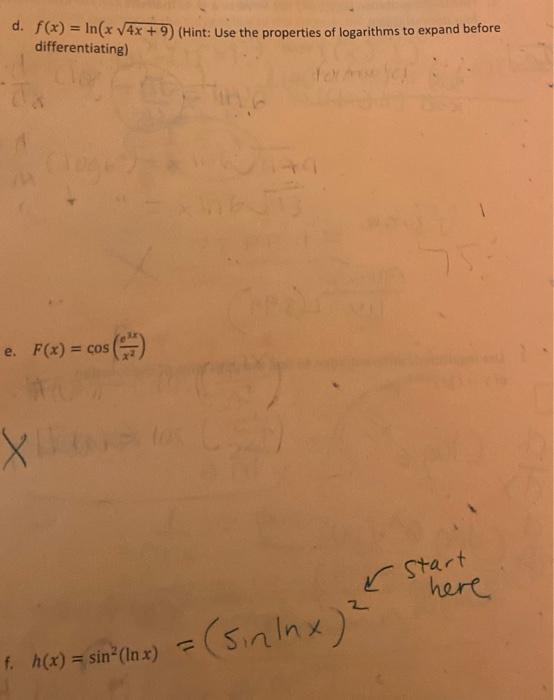 d. f(x) = ln(x √4x + 9) (Hint: Use the properties of logarithms to expand before
differentiating)
e. F(x) = cos(e³ˣ/x²)
X
start
here
f. h(x) = sin²(ln x) = (sin ln x)²